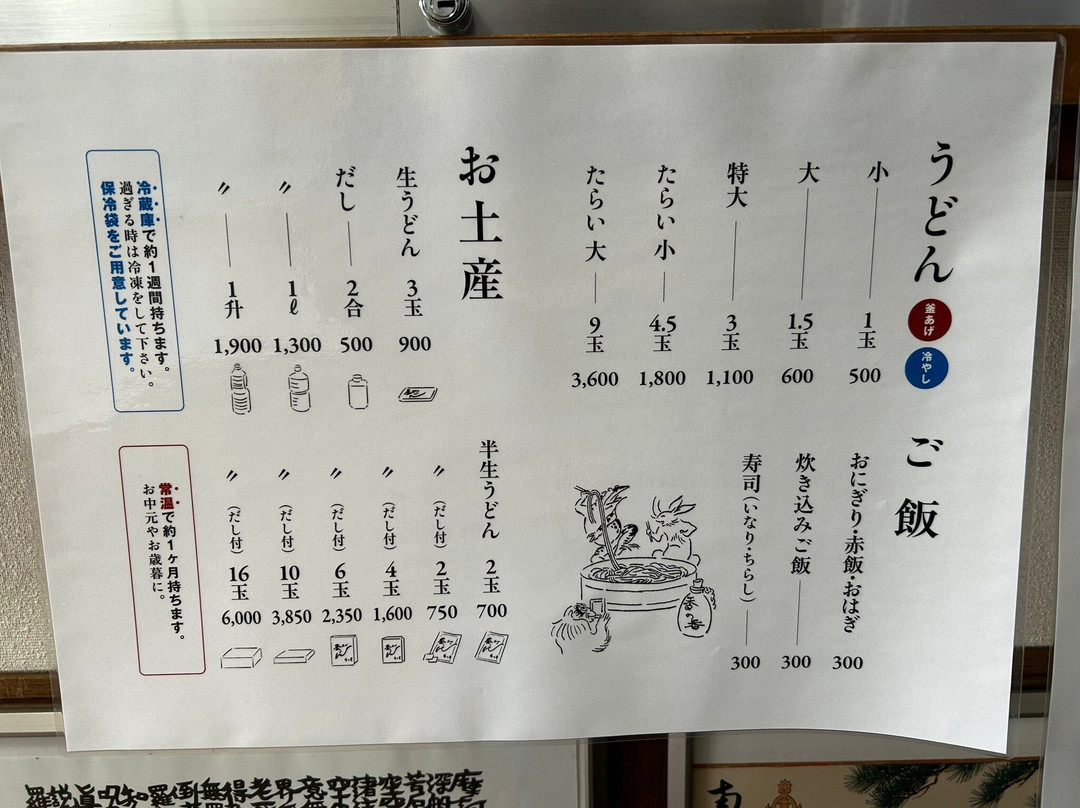 うどん
釜あげ
冷やし
小 1玉 500
大 1.5玉 600
特大 3玉 1,100
たらい 小 4.5玉 1,800
たらい 大 9玉 3,600
ご飯
おにぎり・赤飯・おはぎ 300
炊き込みご飯 300
寿司(いなり・ちらし) 300
香の香
お土産
生うどん 3玉 900
だし 2合 500
〃 1ℓ 1,300
〃 1升 1,900
冷蔵庫で約1週間持ちます。
過ぎる時は冷凍をして下さい。
保冷袋をご用意しています。
半生うどん 2玉 700
〃(だし付) 2玉 750
〃(だし付) 4玉 1,600
〃(だし付) 6玉 2,350
〃(だし付) 10玉 3,850
〃(だし付) 16玉 6,000
常温で約1ヶ月持ちます。
お中元やお歳暮に。
羅説眞呪知羅到無得老界意空律空苦深摩